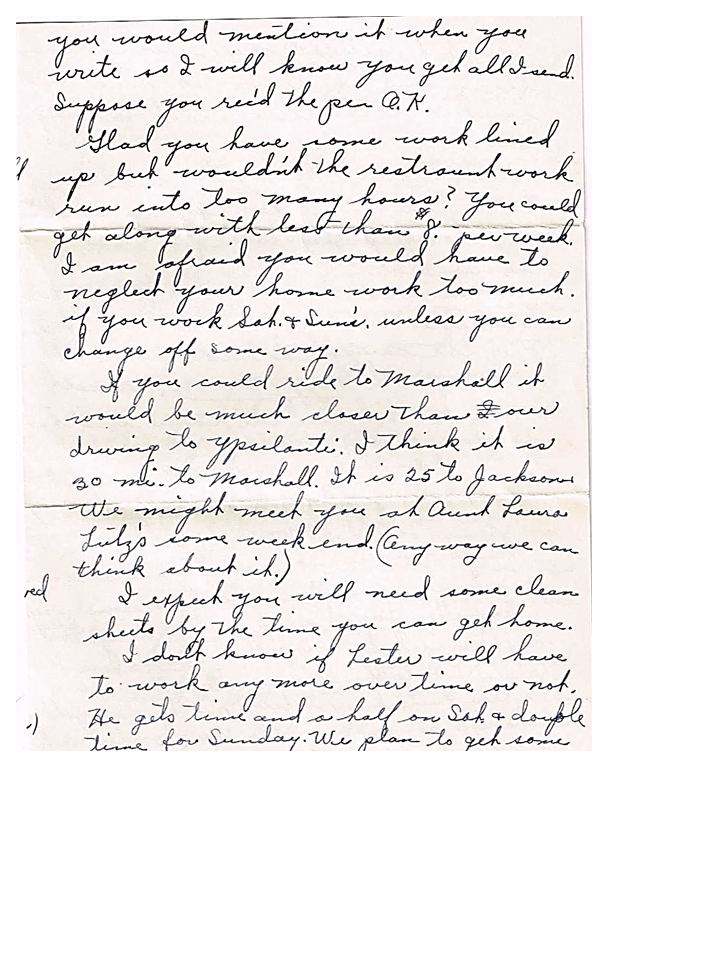 you would mention it when you
write so I will know you get all I send.
Suppose you rec'd the pen O.K.
Glad you have some work lined
up but wouldn't the restraunt work
run into too many hours? You could
get along with less than $8. per week.
I am afraid you would have to
neglect your home work too much.
if you work Sat. & Sun's. unless you can
change off some way.
If you could ride to Marshall it
would be much closer than I our
driving to Ypsilanti. I think it is
30 mi. to Marshall. It is 25 to Jackson.
We might meet you at Aunt Laura
Lutz's some week end. (Any way we can
think about it.)
red
I expect you will need some clean
sheets by the time you can get home.
I don't know if Lester will have
to work any more over time or not.
.)
He gets time and a half on Sat. & double
time for Sunday. We plan to get some